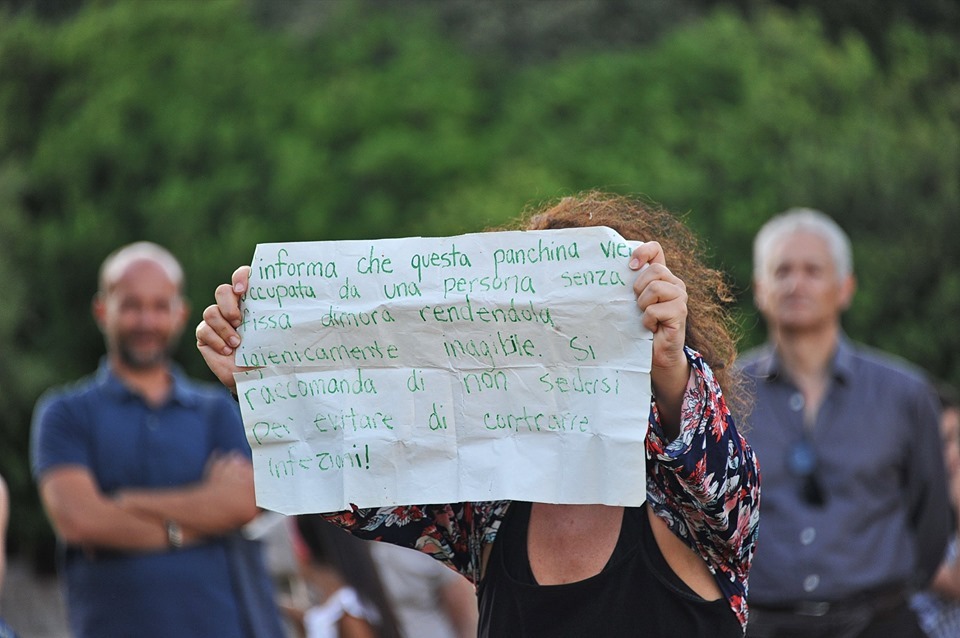 informa che questa panchina vie
occupata da una persona senza
fissa dimora rendendola
igienicamente inagibile. Si
raccomanda di non sedersi
per evitare di contrarre
infezioni!